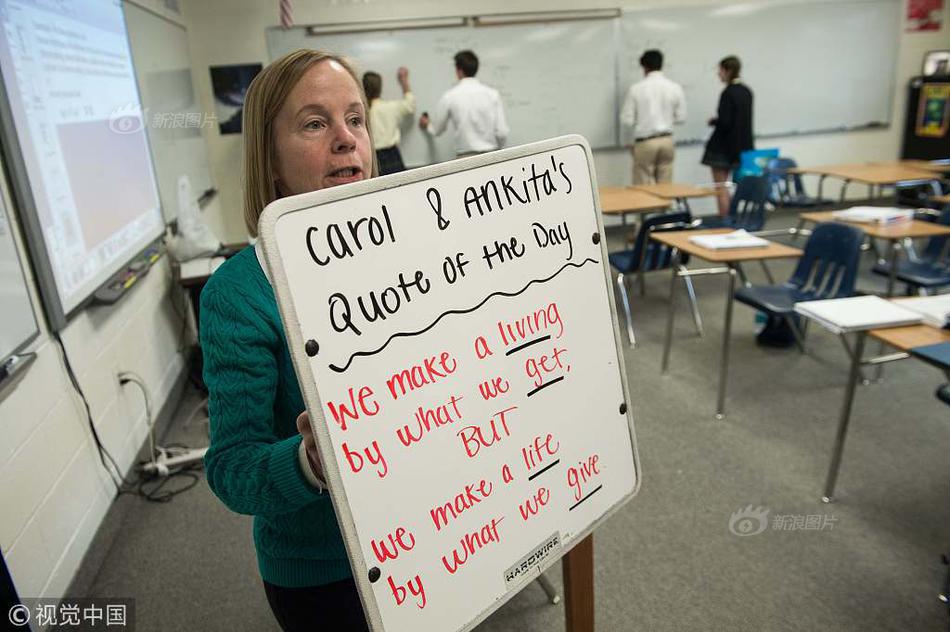 carol & Ankita's
Quote of the Day
We make a living
by what we get,
BUT
we make a life
by what we give.
HARDWIRE
新浪图片
新浪图片
© 视觉中国